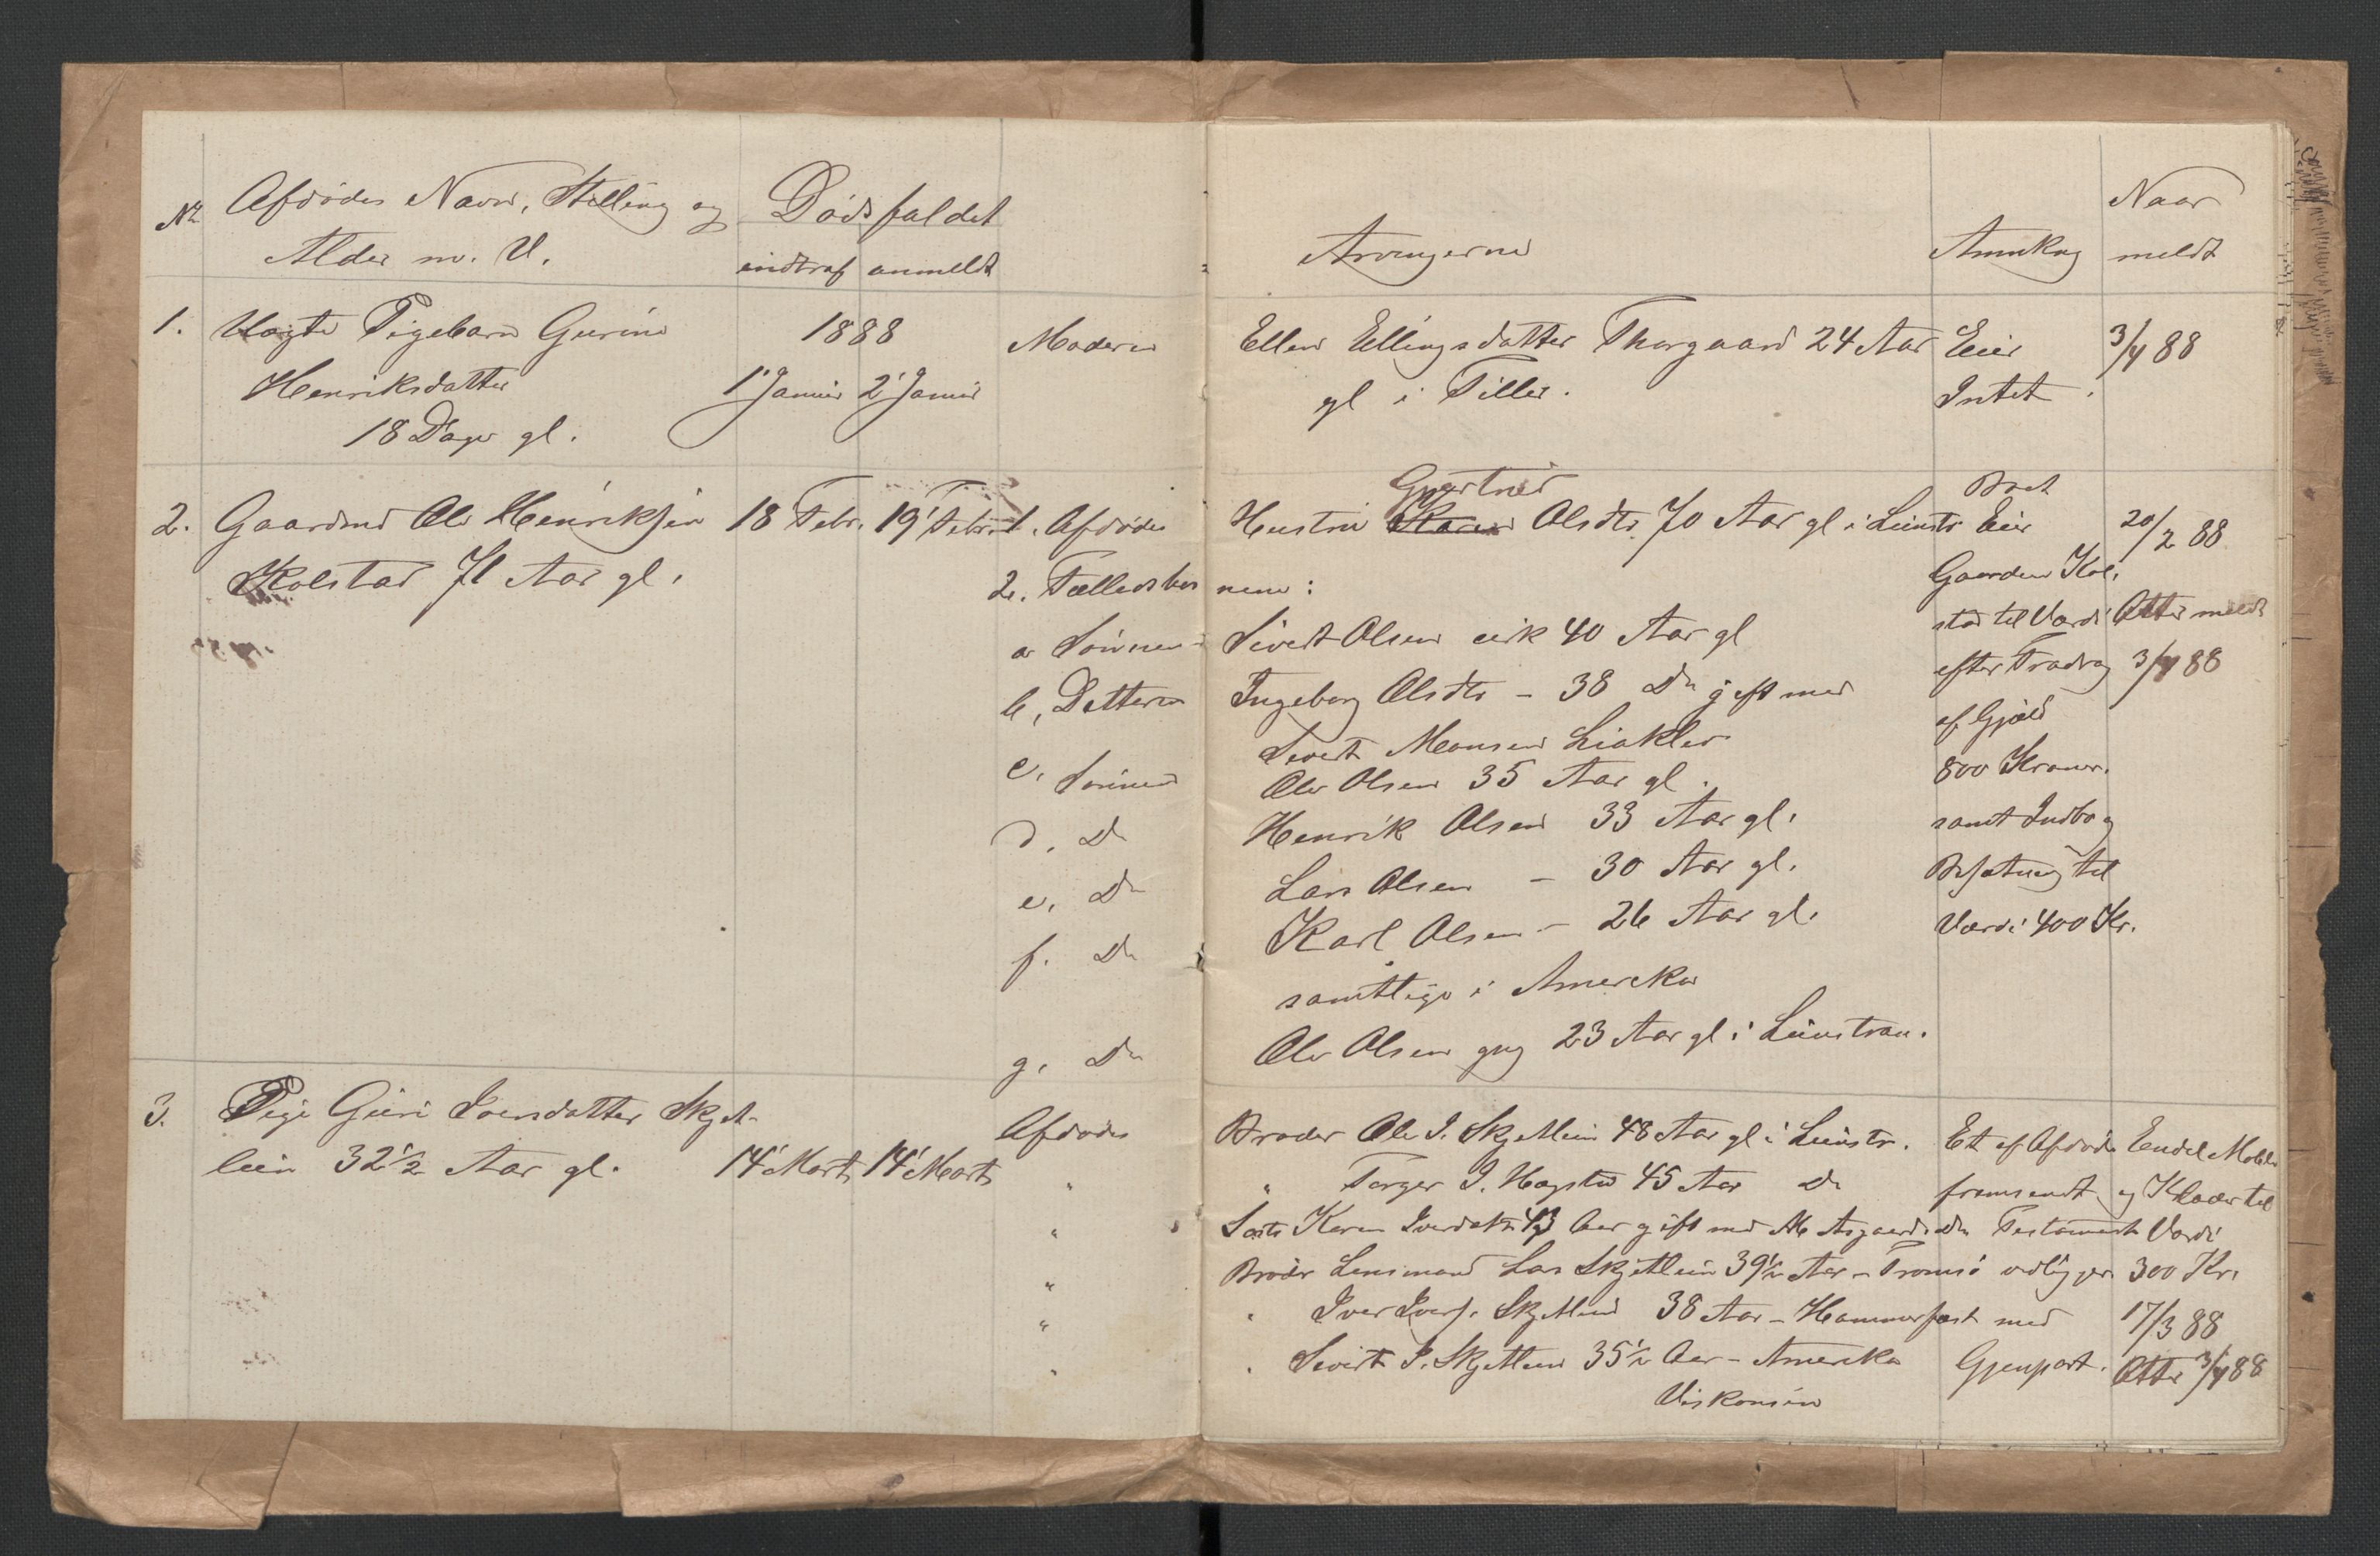 No Afdødes Navn, Stilling og Dødsfaldet
Alder m. V. indtraf anmeldt
Arvingerne Anmkng Naar meldt
1. Uægte Pigebarn Gurine 1888 Moderen Ellen Ellingsdatter Thorgaard 24 Aar Eier 3/4 88
Henriksdatter 1' Januar 2' Januar gl i Tiller. Intet.
18 Dage gl.
2. Gaardmd Ole Henriksen 18 Febr. 19' Febr. 1. Afdødes Hustru Karen Gjertrud Olsdtr. 70 Aar gl i Leinstr. Boet Eier 20/2 88
Kolstad 71 Aar gl. 2. Fællesbørnene: Gaarden Kol-
a Sønnen Sivert Olsen cirk 40 Aar gl stad til Værdi Atter meldt
b, Datteren Ingeborg Olsdtr - 38 Do gift med efter Fradrag 3/4 88
Sivert Monsen Liaklev af Gjæld
c, Sønnen Ole Olsen 35 Aar gl. 800 Kroner.
d. Do Henrik Olsen 33 Aar gl. samt Indbo og
e, Do Lars Olsen - 30 Aar gl. Besætning til
f. Do Karl Olsen - 26 Aar gl. Værdi 400 Kr.
samtlige i Amerika
g, Do Ole Olsen yng 23 Aar gl i Leinstran.
3. Pige Guri Iversdatter Skjet- Afdødes Broder Ole I. Skjetlein 48 Aar gl i Leinstr. Et af Afdøde Eendel Mobler
lein 32 1/2 Aar gl. 14' Marts 14' Marts " " Torger I. 45 Aar Do fremsendt og Klæder til
" Søster Karen Iversdatter 43 Aar gift med Do Testament Værdi
" Broder Lensmand Lars Skjetlein 39 1/2 Aar - Tromsø vedligger 300 Kr.
" " Iver Ivers. Skjetlein 38 Aar - Hammerfest med 17/3 88
" " Sivert I. Skjetlein 35 1/2 Aar - Amerika Gjenpart. Atter 3/4 88
Viskonsin